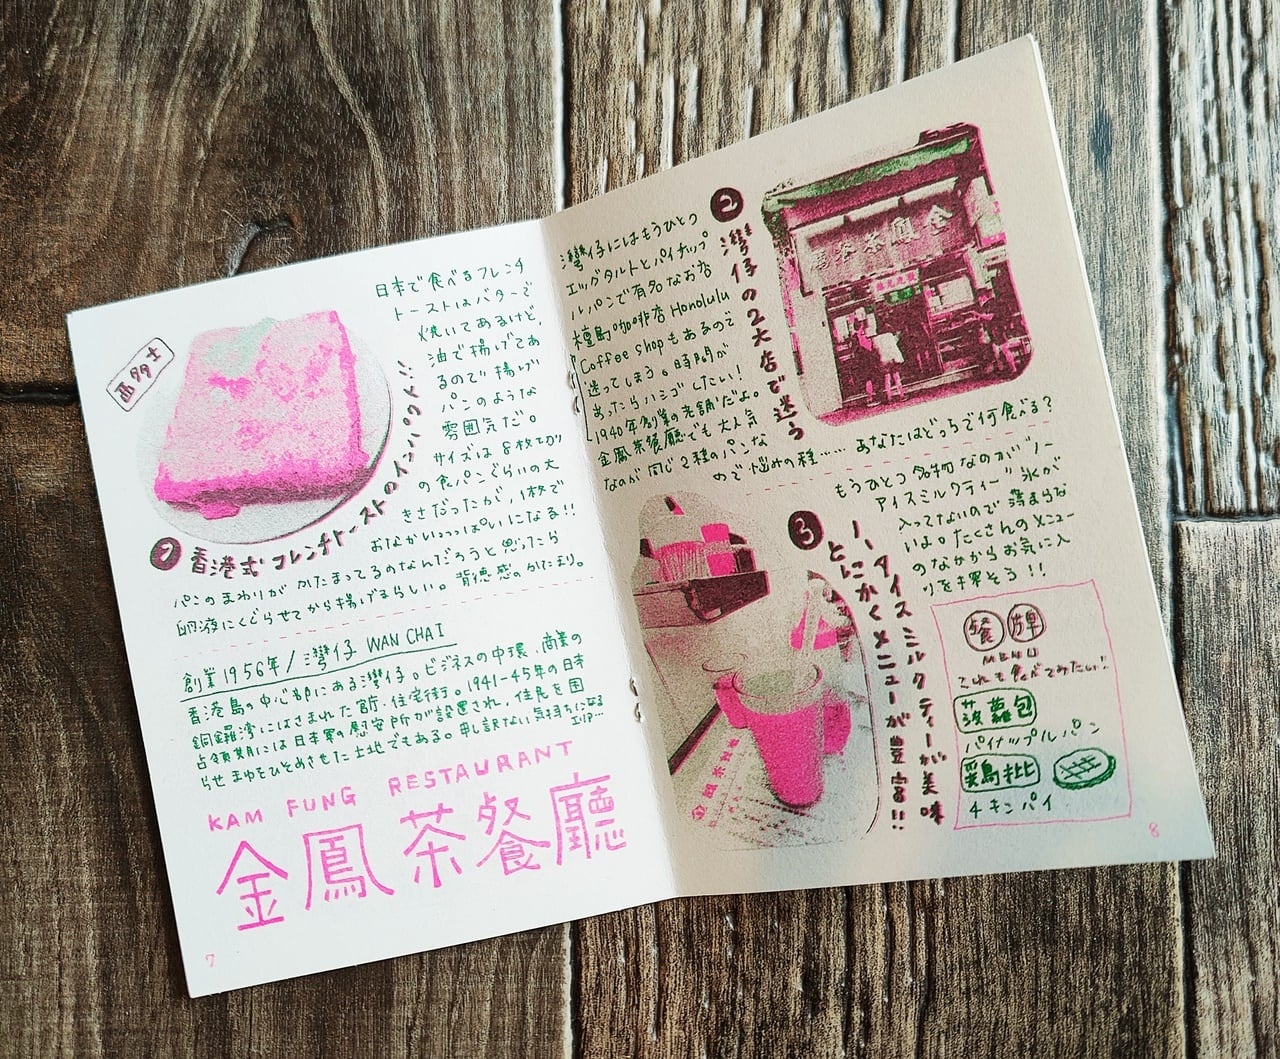 西多士
日本で食べるフレンチ
トーストはバターで
焼いてあるけど、
油で揚げてあ
るので揚げ
パンのような
雰囲気だ。
サイズは8枚切り
の食パンぐらいの大
きさだったが、1枚で
おなかいっっぱいになる!!
1 香港式フレンチトーストのインパクト!!
パンのまわりがかたまってるのなんだろうと思ったら
卵液にくぐらせてから揚げるらしい。背徳感のかたまり。
創業1956年/灣仔 WAN CHAI
香港島の中心部にある灣仔。ビジネスの中環、商業の
銅鑼湾にはさまれた官庁・住宅街。1941-45年の日本
占領期には日本軍の慰安所が設置され、住民を困
らせまゆをひそめさせた土地でもある。申し訳ない気持ちになる
エリア…
KAM FUNG RESTAURANT
金鳳茶餐廳
7
2 灣仔の2大店で迷う
灣仔にはもうひとつ
エッグタルトとパイナップ
ルパンで有名なお店
檀島咖啡店 Honolulu
Coffee shopもあるので
迷ってしまう。時間が
あったらハシゴしたい!
1940年創業の老舗だよ。
金鳳茶餐廳でも大人気
なのが同じ2種のパンな
ので悩みの種…… あなたはどっちで何食べる?
金鳳茶餐廳
3 ノーアイスミルクティーが美味
とにかくメニューが豊富!!
もうひとつ名物なのが"ノー
アイスミルクティー"氷が
入ってないので薄まらな
いよ。たくさんのメニュー
のなかからお気に入
りを探そう!!
金鳳茶餐廳
餐牌
MENU
これも食べてみたい!
菠蘿包
パイナップルパン
雞批
チキンパイ
8